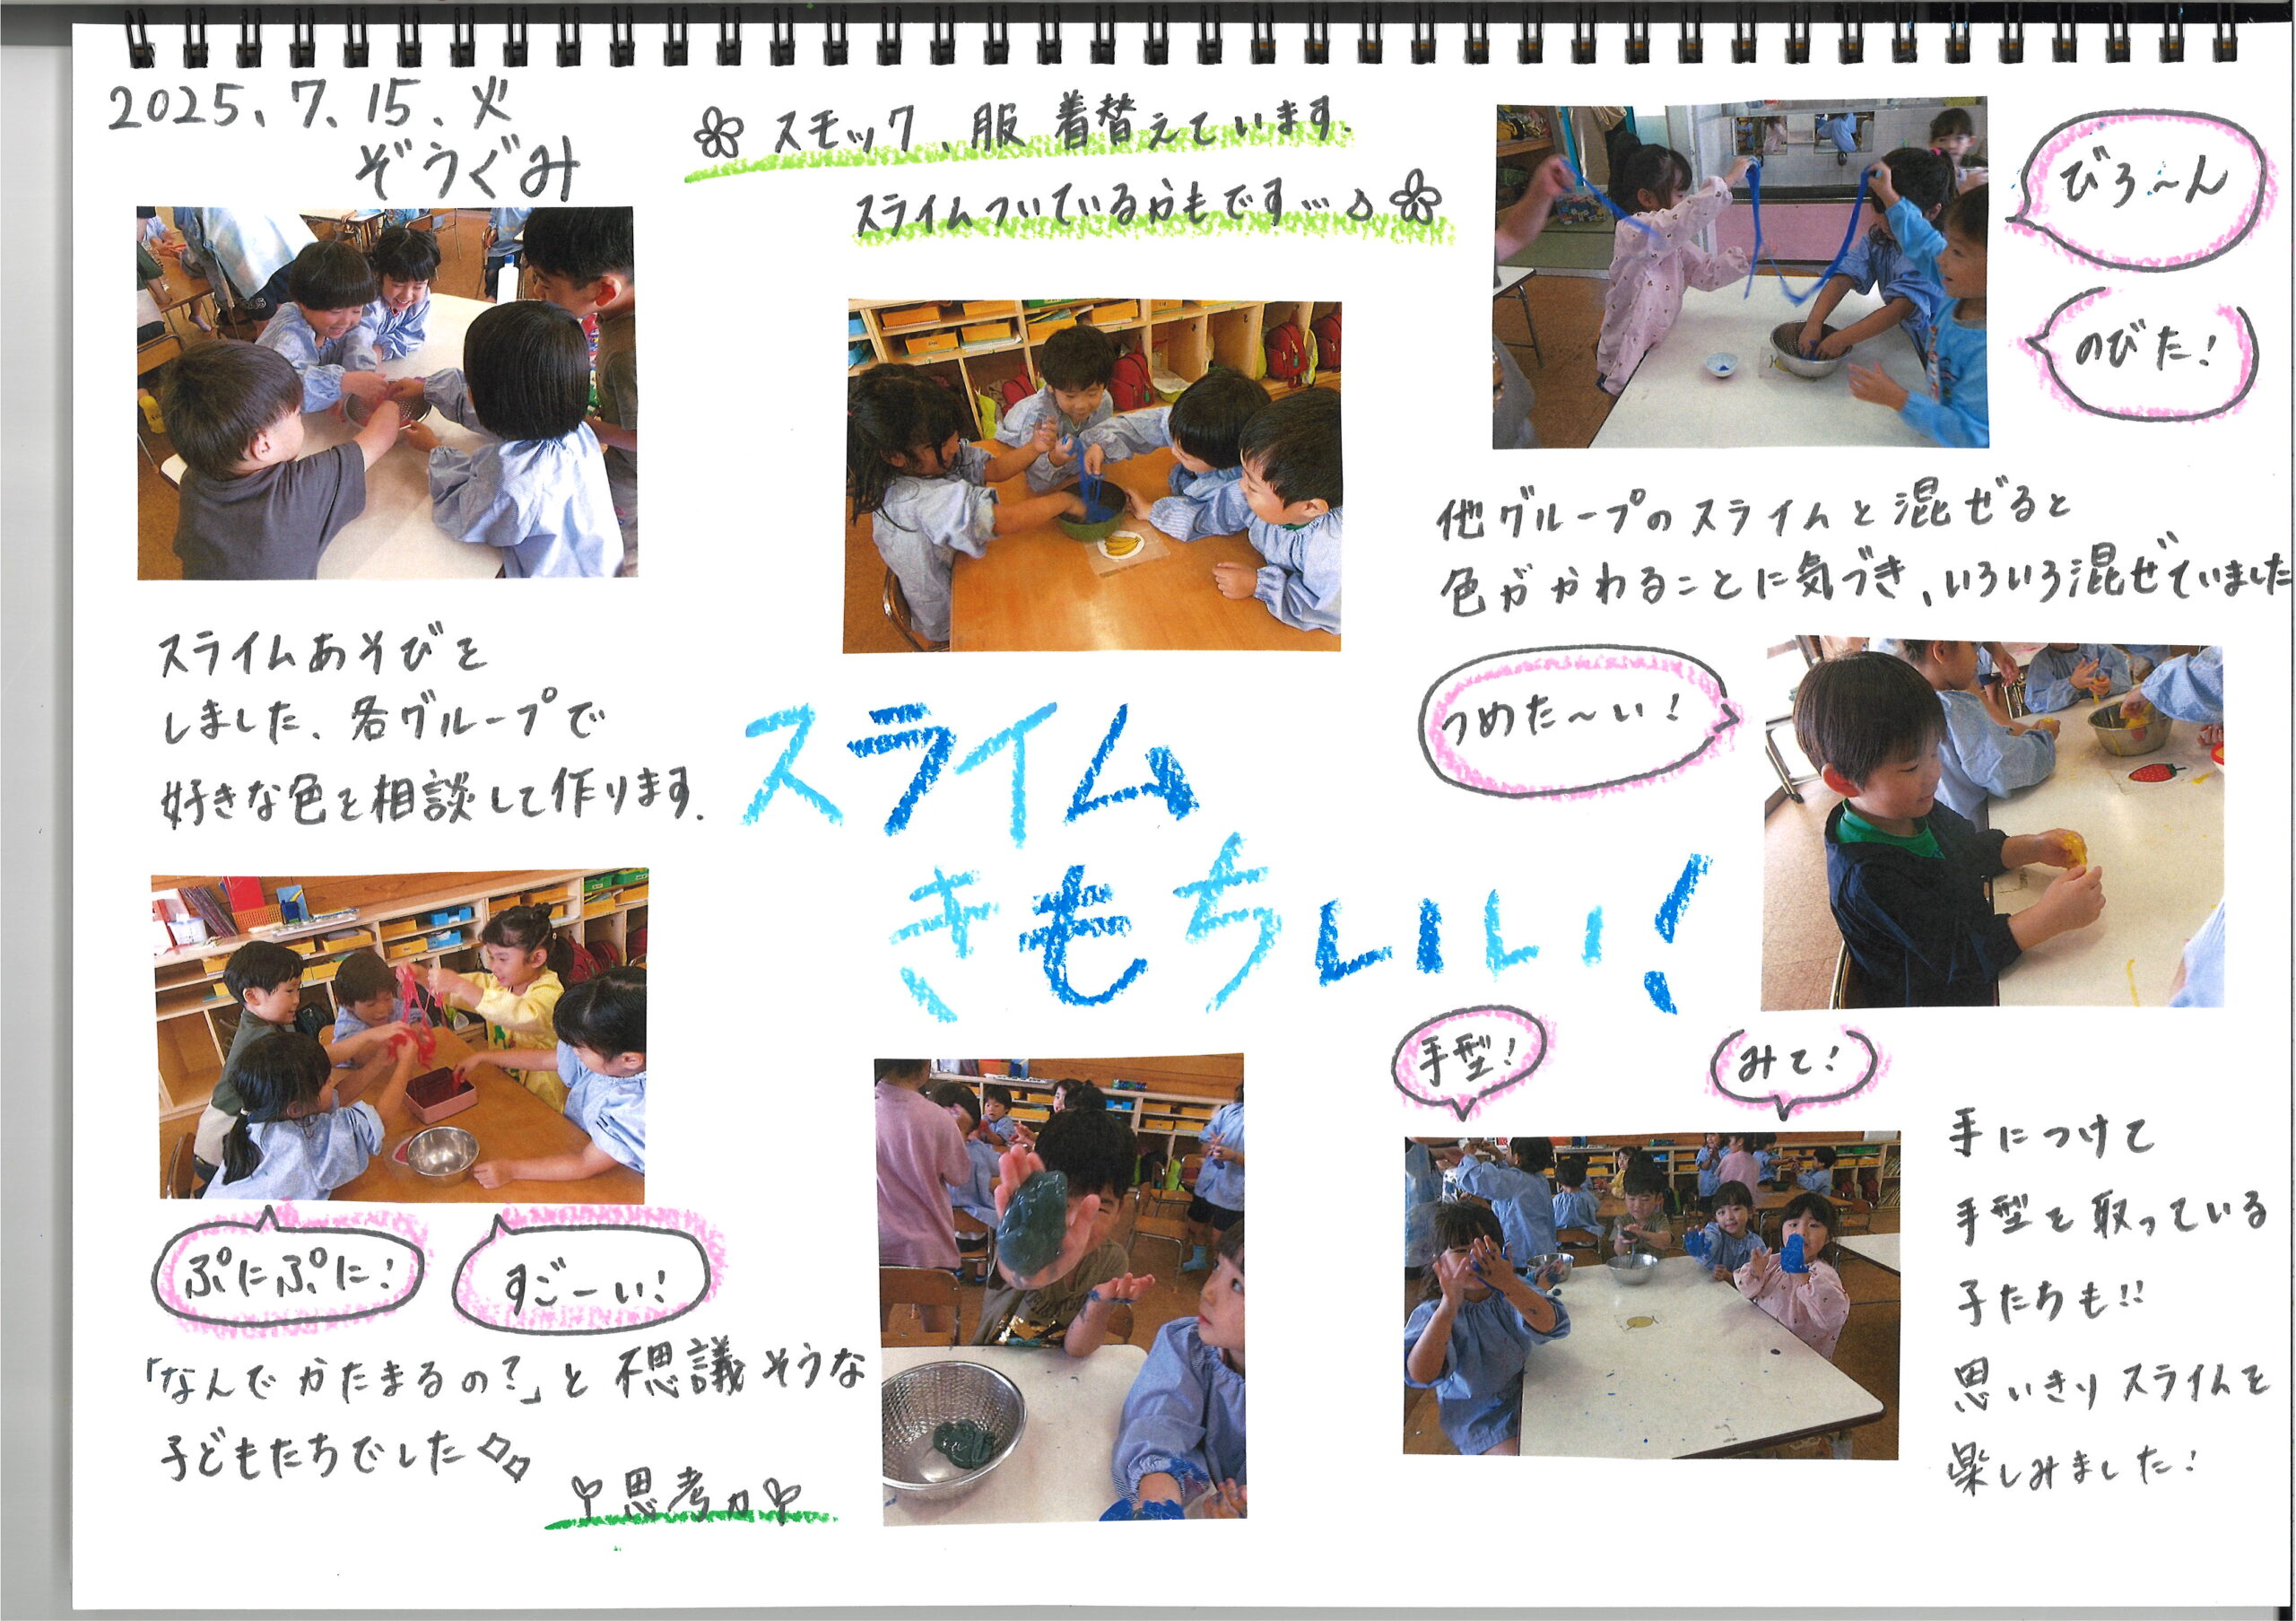 2025.7.15.火
ぞうぐみ
スモック、服 着替えています.
スライムついているかもです…♪
びろ〜ん
のびた!
スライムあそびを
しました。各グループで
好きな色を相談して作ります.
スライム
きもちいい!
他グループのスライムと混ぜると
色がかわることに気づき、いろいろ混ぜていました
つめた〜い!
ぷにぷに!
すごーい!
「なんでかたまるの?」と不思議そうな
子どもたちでした
思考力
手型!
みて!
手につけて
手型を取っている
子たちも!!
思いきりスライムを
楽しみました!